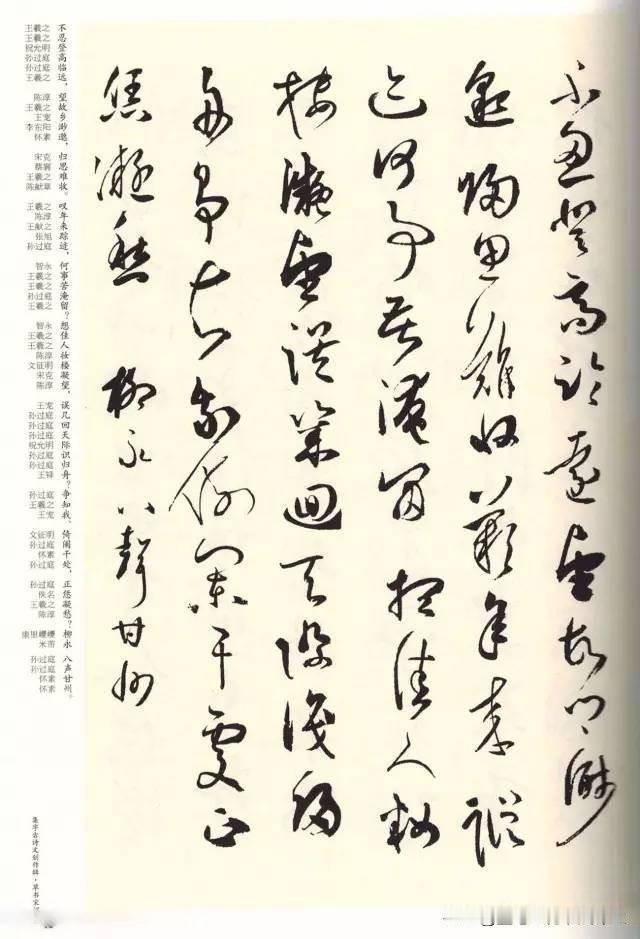 不忍登高臨遠望故鄉渺
邈歸思難收嘆年來蹤
跡何事苦淹留想佳人妝
樓凝望誤幾回天際識歸
舟爭知我倚闌干處正
恁凝愁 柳永八聲甘州
不忍登高临远，望故乡渺邈，归思难收。叹年来踪迹，何事苦淹留？想佳人妆楼凝望，误几回天际识归舟？争知我，倚阑干处，正恁凝愁？柳永 八声甘州。
王羲之
王羲之
祝允明
孙过庭
孙过庭
王羲之
陈淳
王羲之
王宠
李东阳
怀素
宋克
蔡襄
王羲之
陈献章
王羲之
陈淳
王献之
张旭
孙过庭
智永
王羲之
王羲之
孙过庭
王羲之
智永
王羲之
王羲之
陈淳
文征明
宋克
陈淳
王宠
孙过庭
孙过庭
孙过庭
祝允明
孙过庭
孙过庭
王铎
孙过庭
王羲之
王宠
文征明
孙过庭
怀素
孙过庭
孙过庭
佚名
王羲之
陈淳
康里巎巎
米芾
孙过庭
孙过庭
怀素
怀素
集字古诗文创作辑·草书宋词